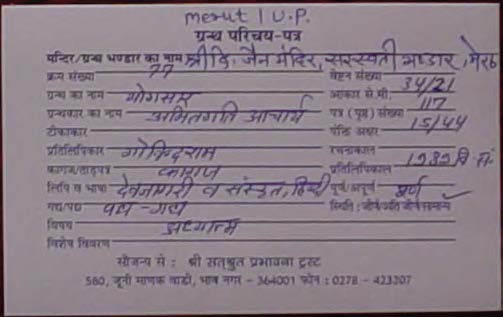 merut | U.P.
ग्रन्थ परिचय-पत्र
मन्दिर/ग्रन्थ भण्डार का नाम श्री दि. जैन मंदिर, सरस्वती भण्डार, मेरठ
क्रम संख्या 77 वेष्टन संख्या
ग्रन्थ का नाम योगसार आकार से.मी. 34/21
ग्रन्थकार का नाम अमितगति आचार्य पत्र (पृष्ठ) संख्या 117
टीकाकार पंक्ति अक्षर 15/44
प्रतिलिपिकार गोविन्दराम रचनाकाल
कागज/ताड़पत्र कागज प्रतिलिपिकाल 1989 वि सं.
लिपि व भाषा देवनागरी व संस्कृत, हिन्दी पूर्ण/अपूर्ण पूर्ण
गद्य/पद्य पद्य-गद्य स्थिति : जीर्ण/अति जीर्ण/सामान्य ✓
विषय अध्यात्म
विशेष विवरण
सौजन्य से : श्री सत्श्रुत प्रभावना ट्रस्ट
580, जूनी माणक वाडी, भाव नगर - 364001 फोन : 0278 - 423207